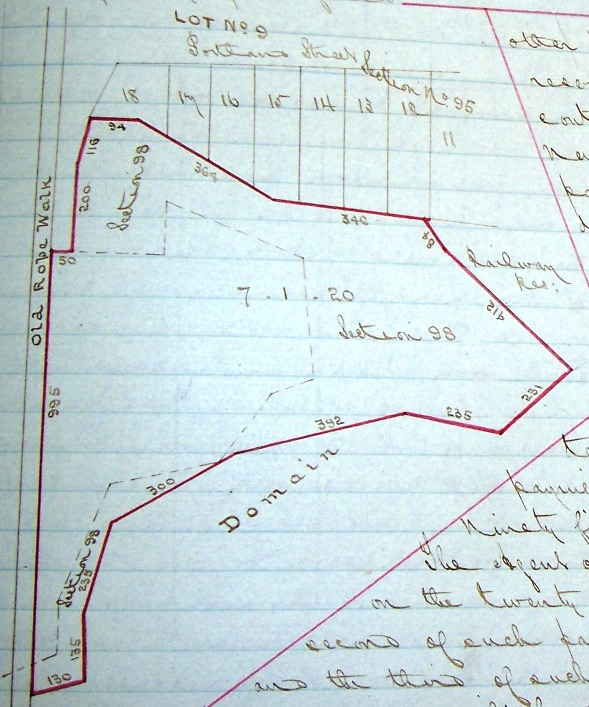 LOT No 9
Portland Street
Section No 95
18 17 16 15 14 13 12
11
94
116
200
Section 98
364
346
84
50
Old Rope Walk
Railway
Res:
7 . 1 . 20
Section 98
412
231
995
392
235
300
Domain
Section 98
235
135
130
other
rese
cont
payme
Ninety f
The Agent o
on the twenty
second of each pa
and the third of each